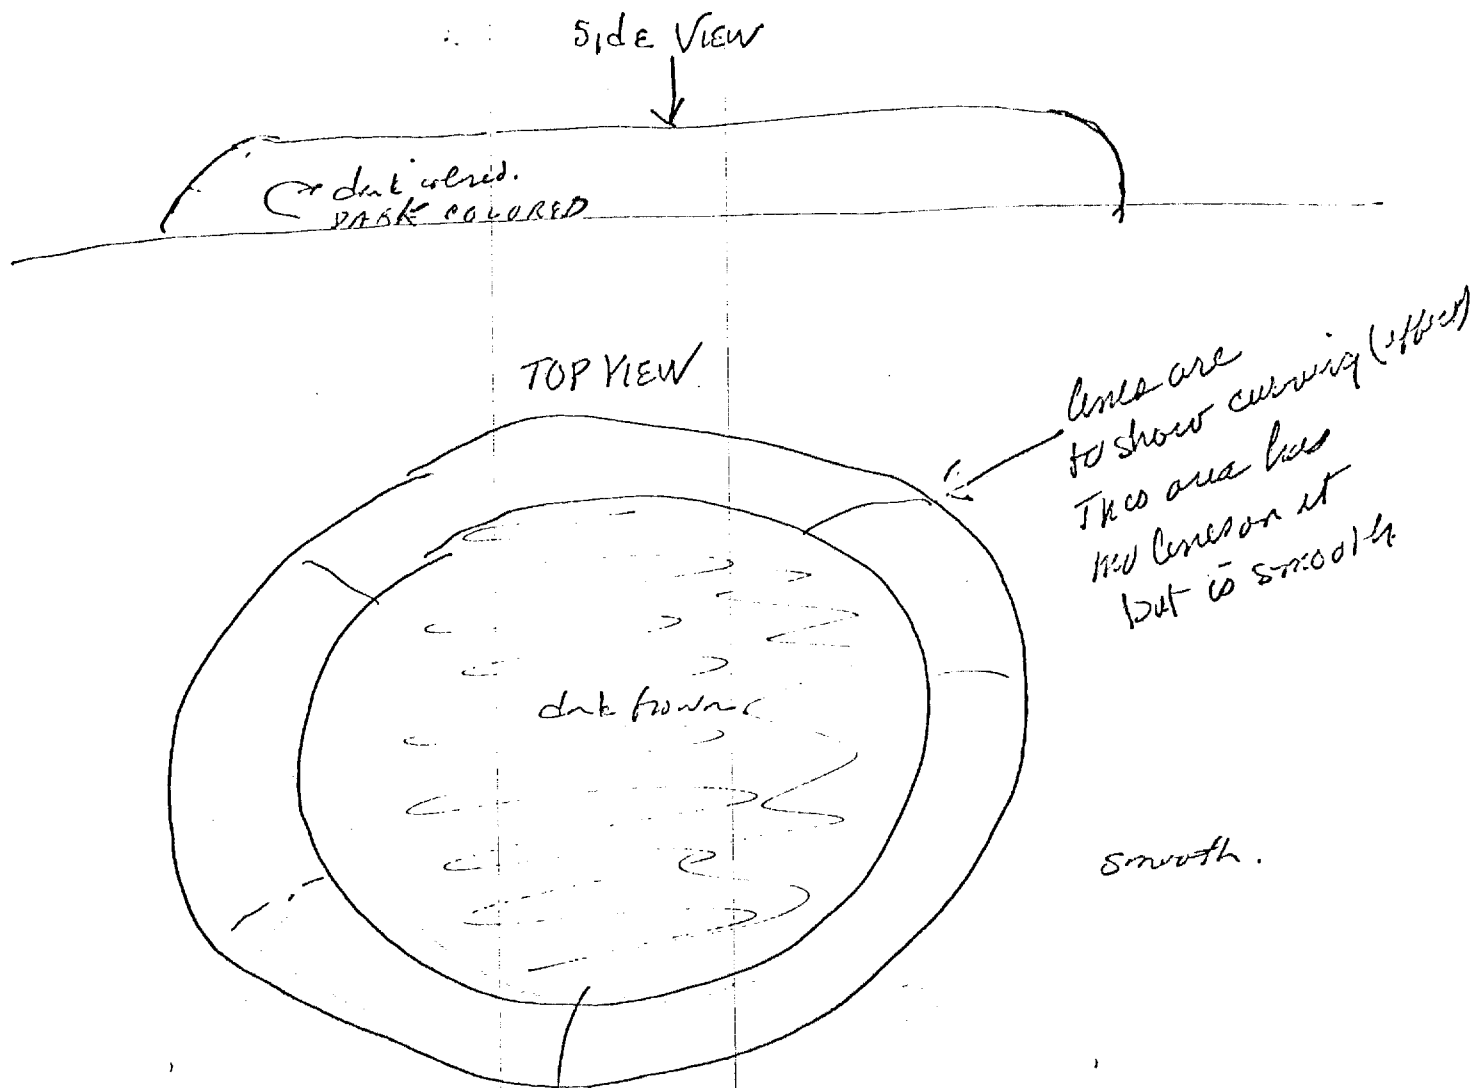 SIDE VIEW
dark colored.
DARK COLORED
TOP VIEW
lines are
to show curving (effect)
This area has
no lines on it
but is smooth
dark brown
smooth.